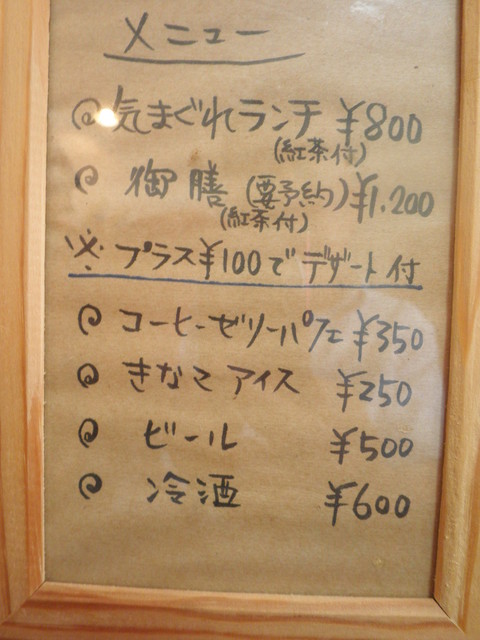 メニュー
気まぐれランチ ¥800
(紅茶付)
御膳 (要予約) ¥1,200
(紅茶付)
※ プラス¥100で デザート付
コーヒーゼリーパフェ ¥350
きなこアイス ¥250
ビール ¥500
冷酒 ¥600